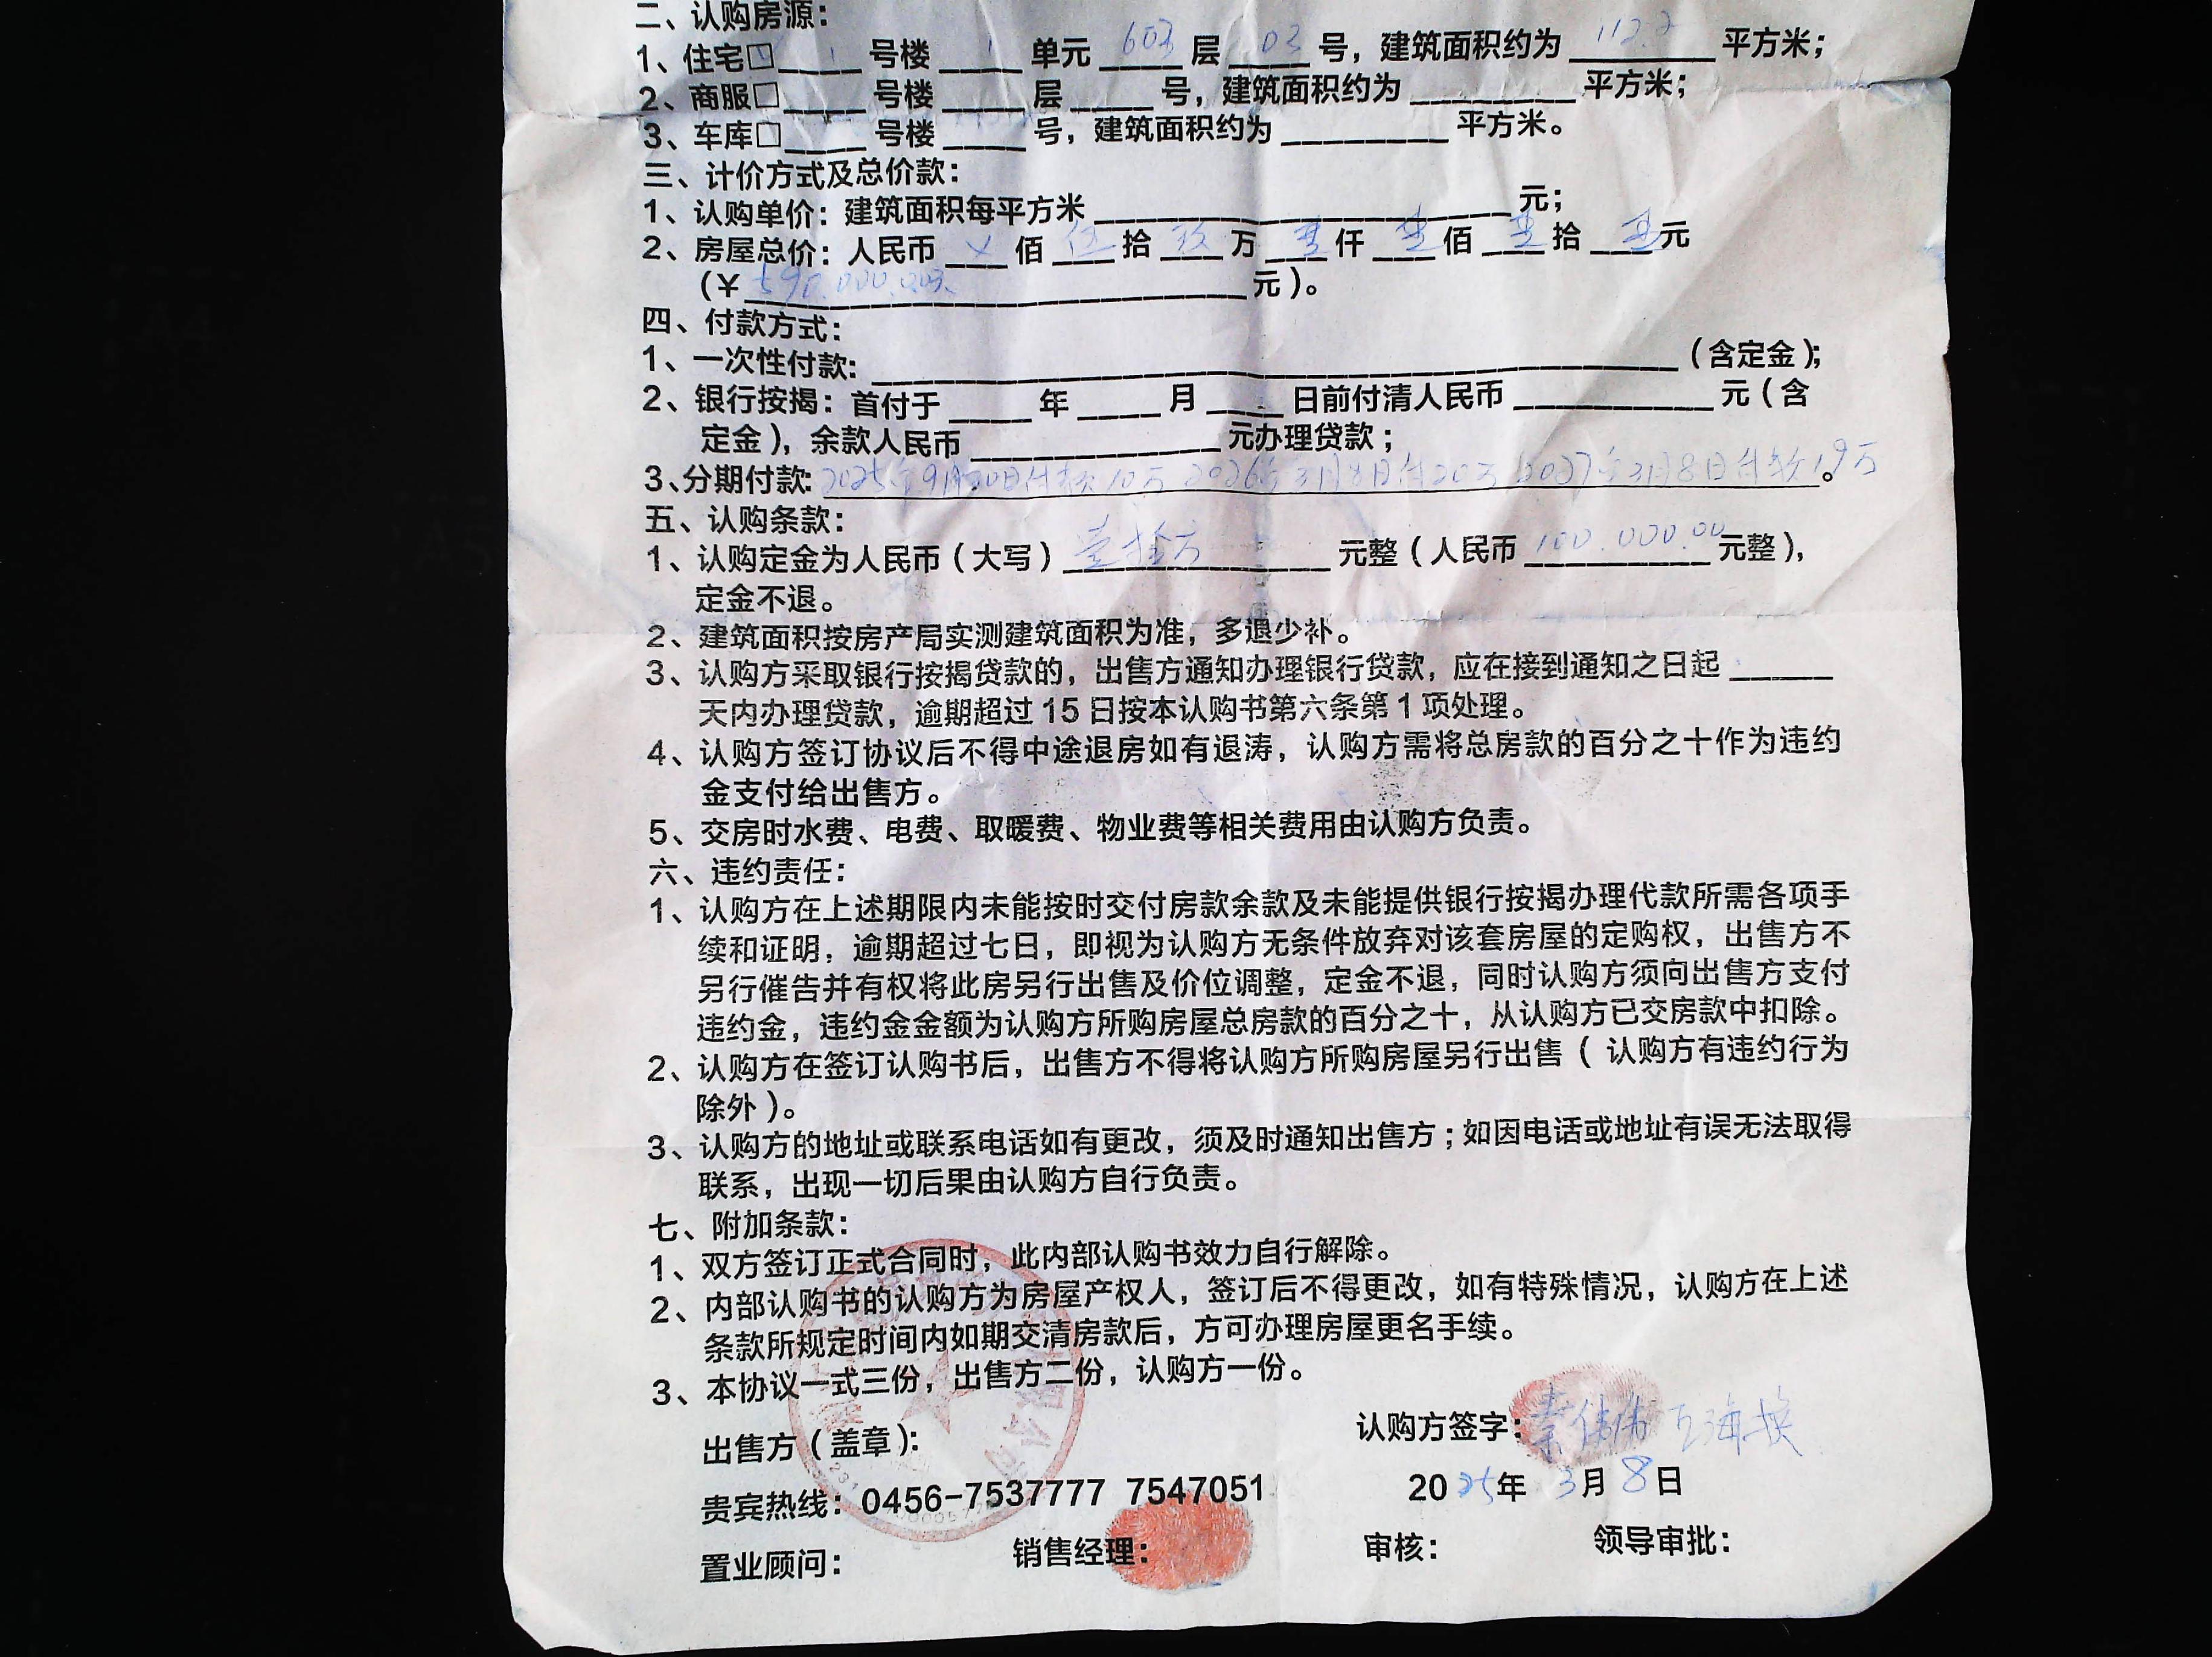 二、认购房源：
1、住宅☑ 1 号楼 1 单元 603 层 03 号，建筑面积约为 112.2 平方米；
2、商服□____号楼____层____号，建筑面积约为________平方米；
3、车库□____号楼____号，建筑面积约为________平方米。
三、计价方式及总价款：
1、认购单价：建筑面积每平方米____________________元；
2、房屋总价：人民币 ㄨ 佰 伍 拾 玖 万 仟 佰 拾 元
(￥ 590.000.00 元)。
四、付款方式：
1、一次性付款：________________________________________(含定金)；
2、银行按揭：首付于____年____月____日前付清人民币__________元(含
定金)，余款人民币____________元办理贷款；
3、分期付款：2025年9月30日付款10万 2026年3月8日付20万 2027年3月8日付款19万。
五、认购条款：
1、认购定金为人民币(大写) 壹拾万 元整(人民币 100.000.00 元整)，
定金不退。
2、建筑面积按房产局实测建筑面积为准，多退少补。
3、认购方采取银行按揭贷款的，出售方通知办理银行贷款，应在接到通知之日起_____
天内办理贷款，逾期超过15日按本认购书第六条第1项处理。
4、认购方签订协议后不得中途退房如有退涛，认购方需将总房款的百分之十作为违约
金支付给出售方。
5、交房时水费、电费、取暖费、物业费等相关费用由认购方负责。
六、违约责任：
1、认购方在上述期限内未能按时交付房款余款及未能提供银行按揭办理代款所需各项手
续和证明，逾期超过七日，即视为认购方无条件放弃对该套房屋的定购权，出售方不
另行催告并有权将此房另行出售及价位调整，定金不退，同时认购方须向出售方支付
违约金，违约金金额为认购方所购房屋总房款的百分之十，从认购方已交房款中扣除。
2、认购方在签订认购书后，出售方不得将认购方所购房屋另行出售(认购方有违约行为
除外)。
3、认购方的地址或联系电话如有更改，须及时通知出售方；如因电话或地址有误无法取得
联系，出现一切后果由认购方自行负责。
七、附加条款：
1、双方签订正式合同时，此内部认购书效力自行解除。
2、内部认购书的认购方为房屋产权人，签订后不得更改，如有特殊情况，认购方在上述
条款所规定时间内如期交清房款后，方可办理房屋更名手续。
3、本协议一式三份，出售方二份，认购方一份。
出售方(盖章)： 认购方签字：
贵宾热线：0456-7537777 7547051 2025年 3月 8日
置业顾问： 销售经理： 审核： 领导审批：